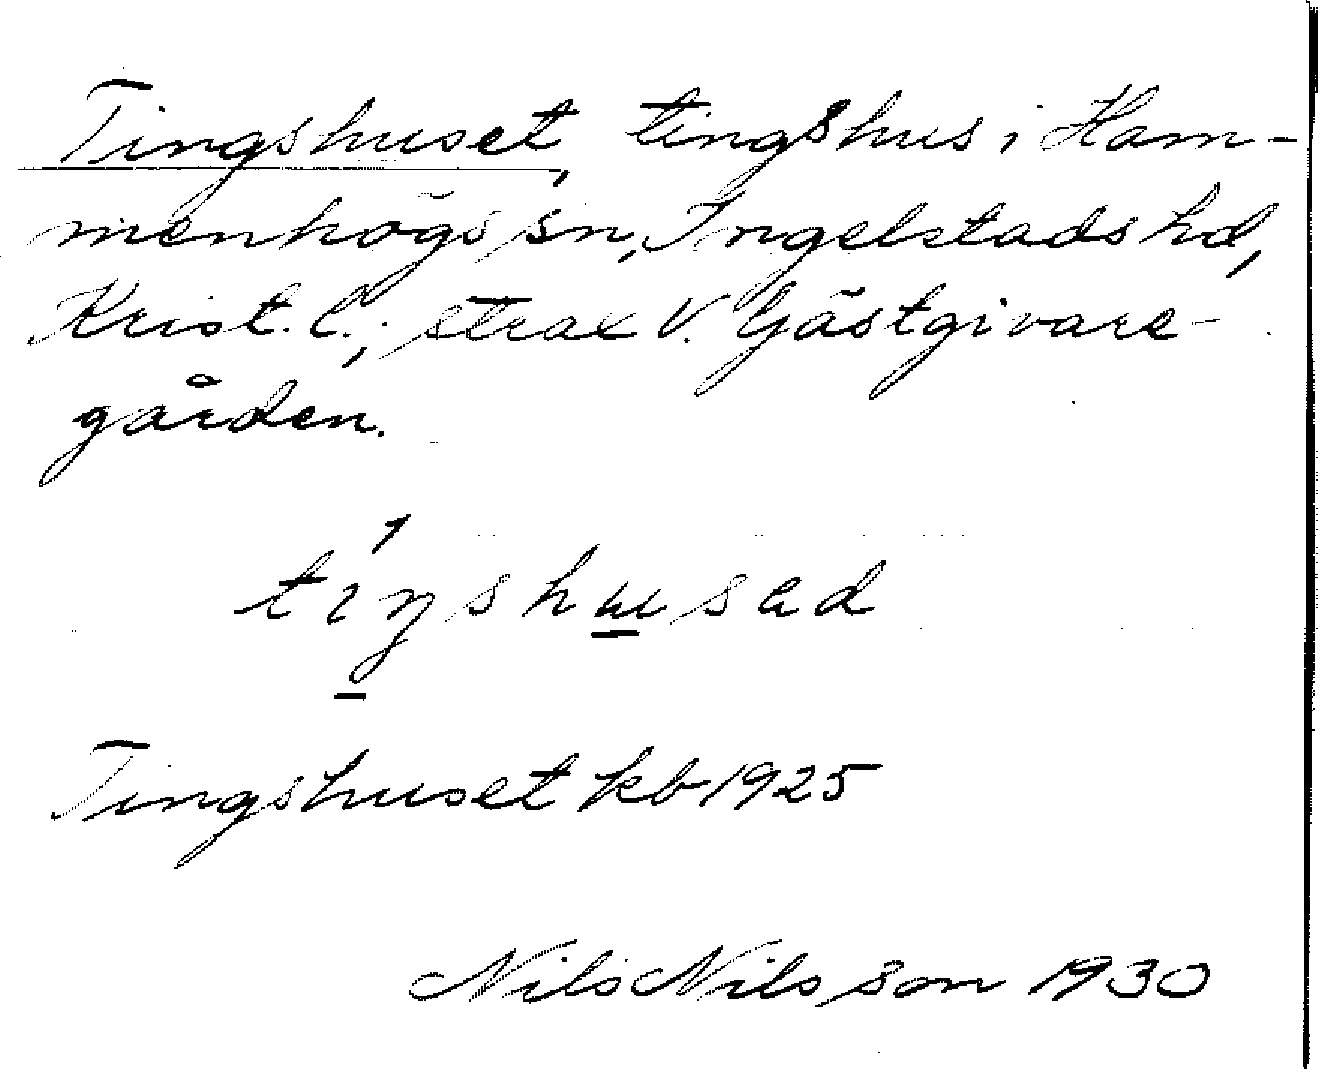 Tingshuset, tingshus i Ham-
menhögs sn, Ingelstads hd,
Krist. l.; strax V. Gästgivare-
gården.
tíŋshusad
Tingshuset kb 1925
Nils Nilsson 1930